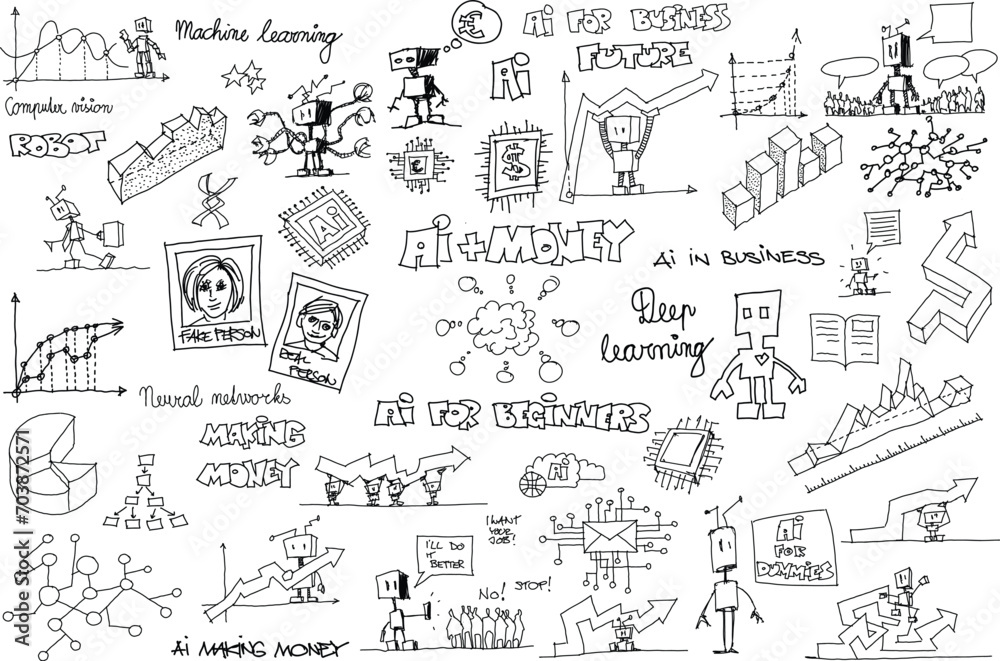 Machine learning
€
Ai FOR BUSINESS
FUTURE
Ai
Computer vision
ROBOT
€
$
Ai
Ai+MONEY
Ai IN BUSINESS
FAKE PERSON
REAL
PERSON
Deep
learning
Neural networks
Ai FOR BEGINNERS
MAKING
MONEY
Ai
I WANT
YOUR
JOB!
I'LL DO
IT
BETTER
NO!
STOP!
Ai
FOR
DUMMIES
Ai MAKING MONEY
Adobe Stock | #703872571